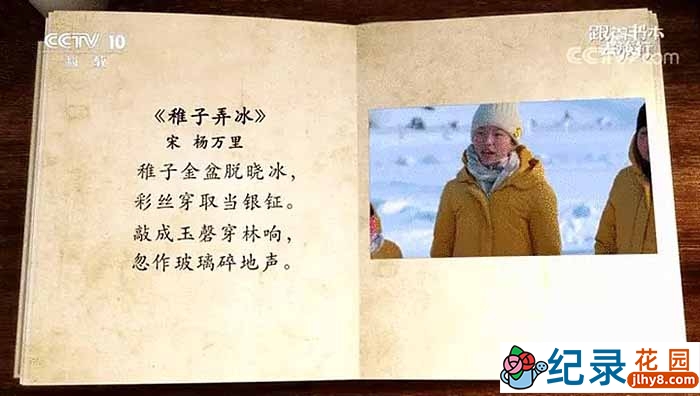 CCTV 10
科教
跟着书本
去旅行
CCTV.com
《稚子弄冰》
宋 杨万里
稚子金盆脱晓冰，
彩丝穿取当银钲。
敲成玉磬穿林响，
忽作玻璃碎地声。
纪录花园
jlhy8.com